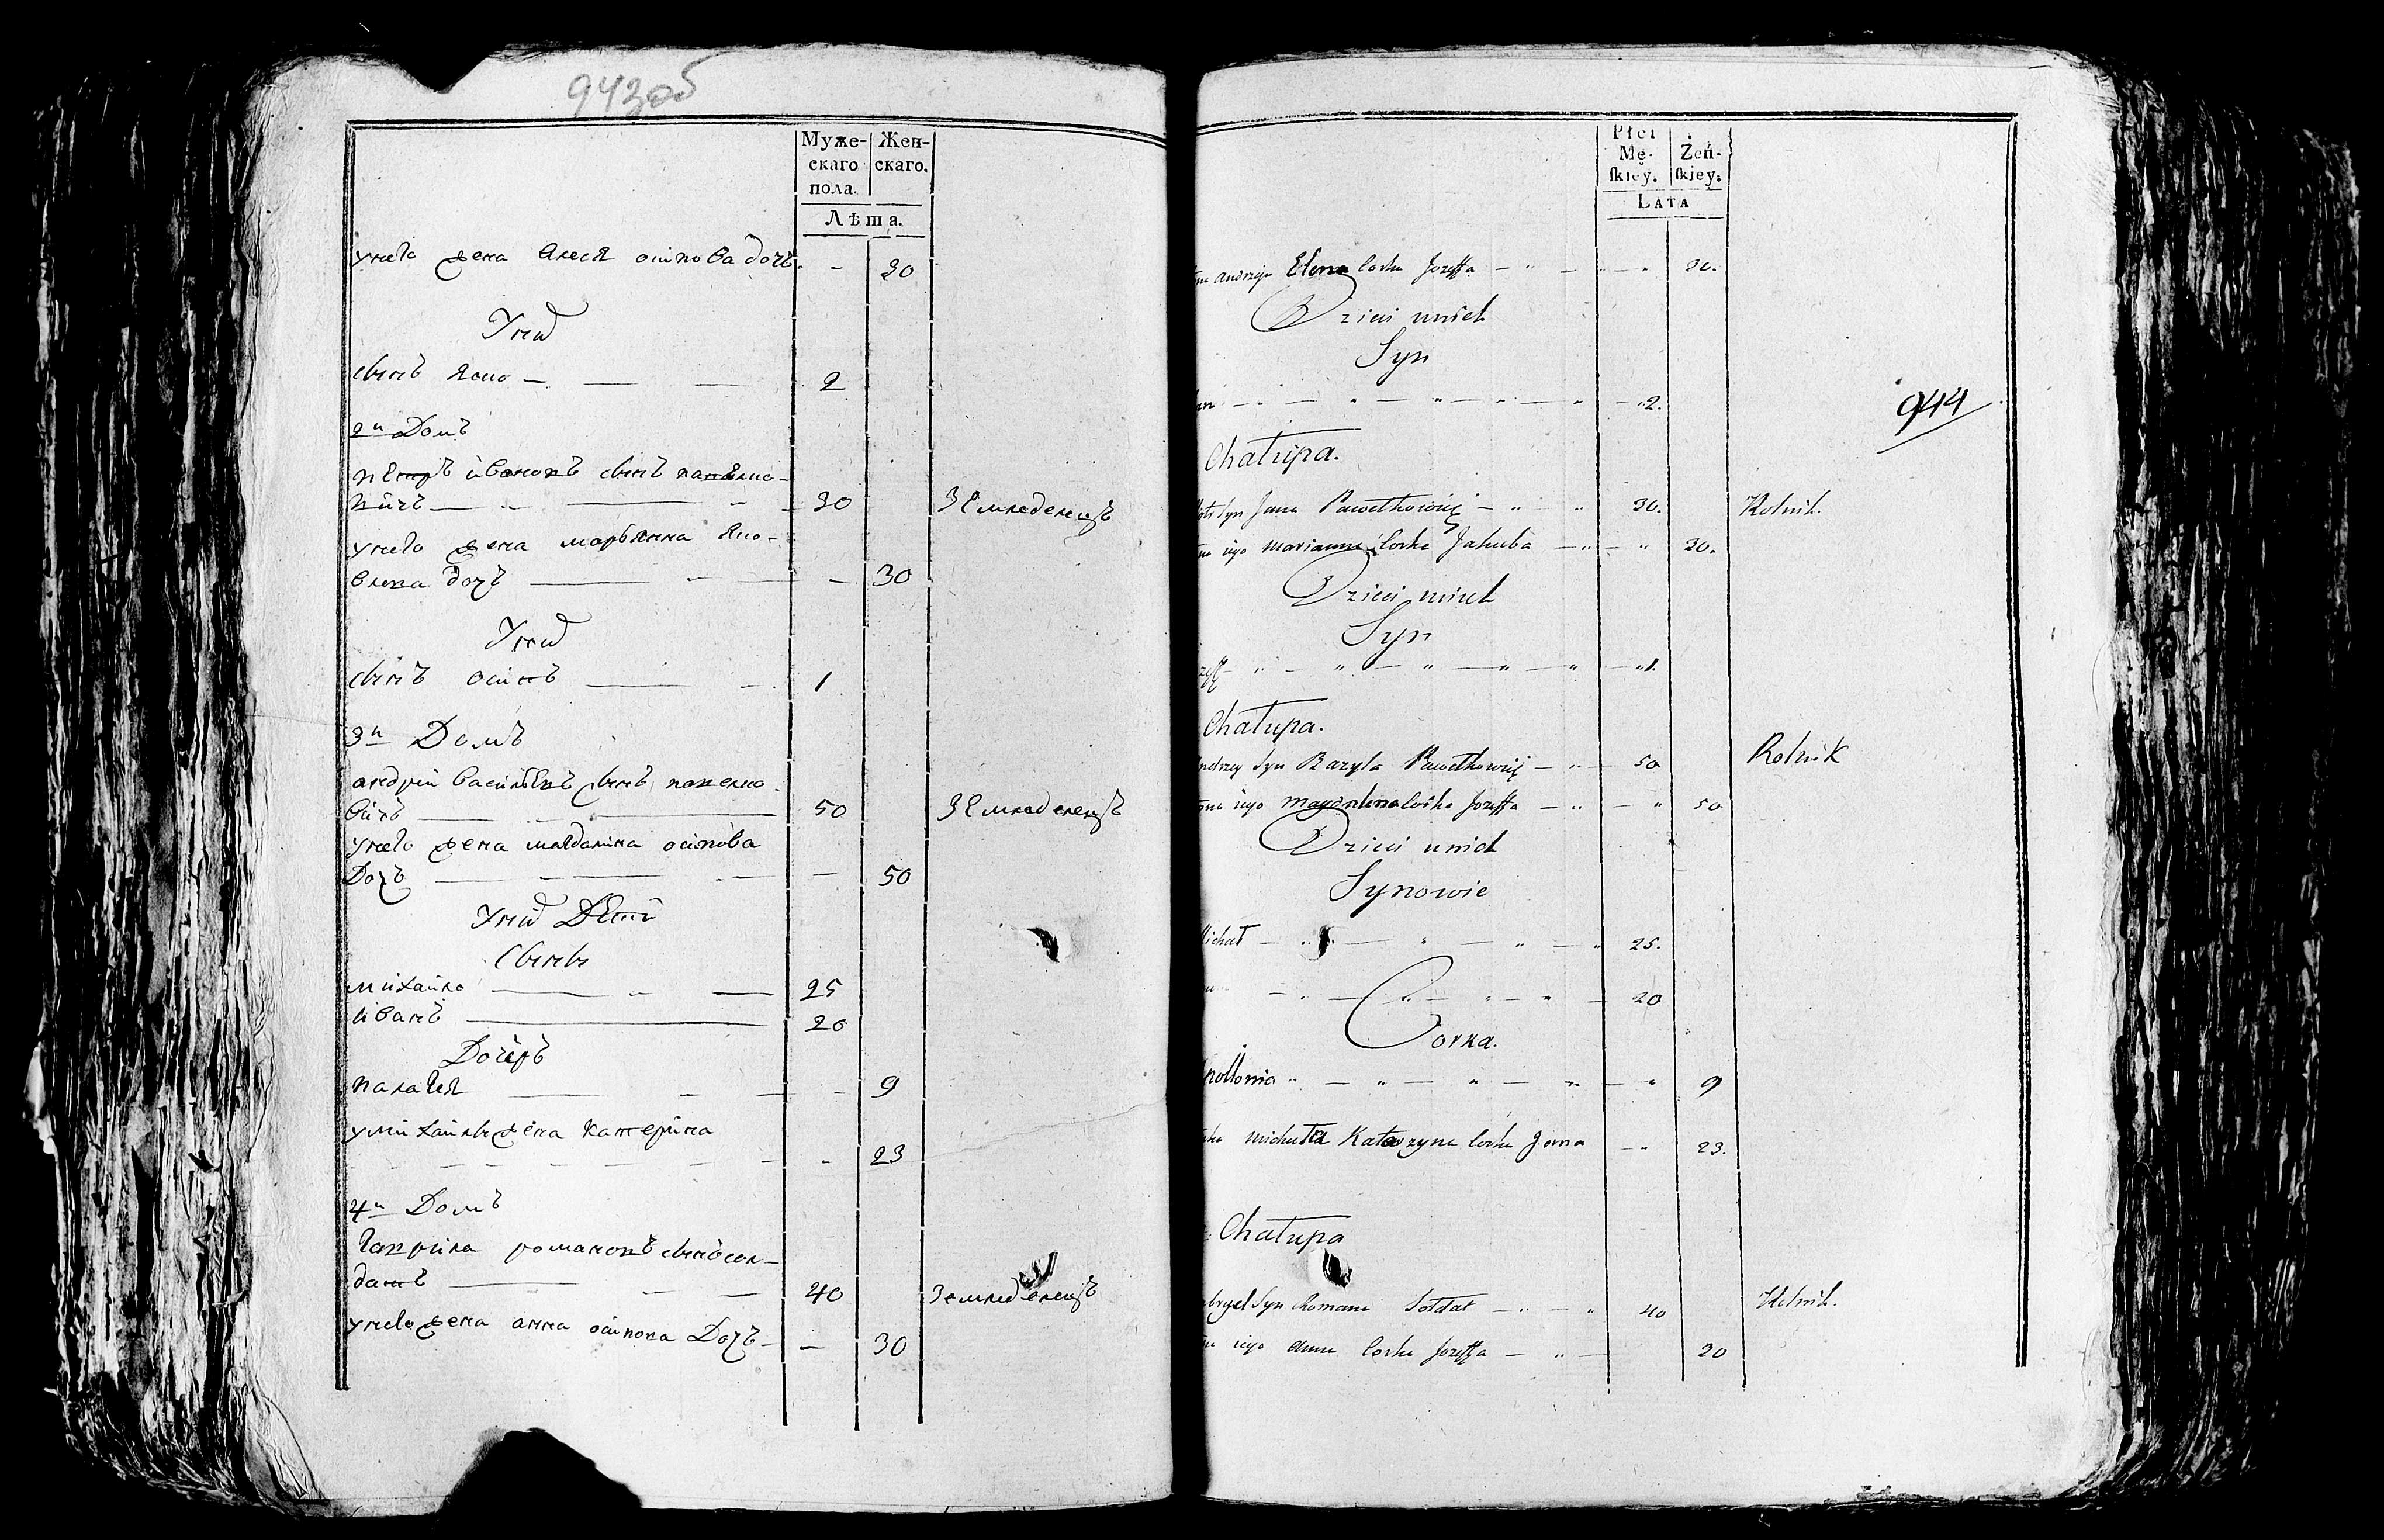 943об
Муже-
скаго
пола.
Жен-
скаго.
Лѣта.
унего жена Алеся осипова дочь - 30
Унихъ
сынъ Яско — — — 2
2й Домъ
пётръ ивановъ сынъ павлко-
вичъ — — 30 Земледелецъ
унего жена марьянна Яко-
влева дочь — — 30
Унихъ
сынъ осипъ — — 1
3й Домъ
андрей васильевъ сынъ павелко-
вичъ — — 50 Земледелецъ
унего жена магдалина осипова
Дочь — — — 50
Унихъ Дети
Сыны
михайло — — 25
иванъ — 20
Дочеръ
палагея — — - 9
умихайлы жена катерина
- 23
4й Домъ
гаврила романовъ сынъ сол-
датъ — — 40 Земледелецъ
унего жена анна осипова Дочь - — 30
Płci
Mę-
skiey.
Żeń-
skiey.
LATA
na andrzeja Elena Corka Jozeffa — 30.
Dzieci unich
Syn
an — 2.
944
Chałupa.
iotr Syn Jana Pawełkowicz — 30. Rolnik.
na iego marianna Corka Jakuba — 30.
Dzieci unich
Syn
zeff — 1.
Chałupa.
ndrzey Syn Bazyla Pawełkowicz — 50 Rolnik
ona iego magdalena Corka Jozeffa — 50
Dzieci unich
Synowie
Michał — 25.
— 20
Corka.
Apollonia — 9
michała Katarzyna Corka Jana -- 23.
Chałupa
bryel Syn Romana Sołdat — 40 Rolnik.
na iego anna Corka Jozeffa — 30